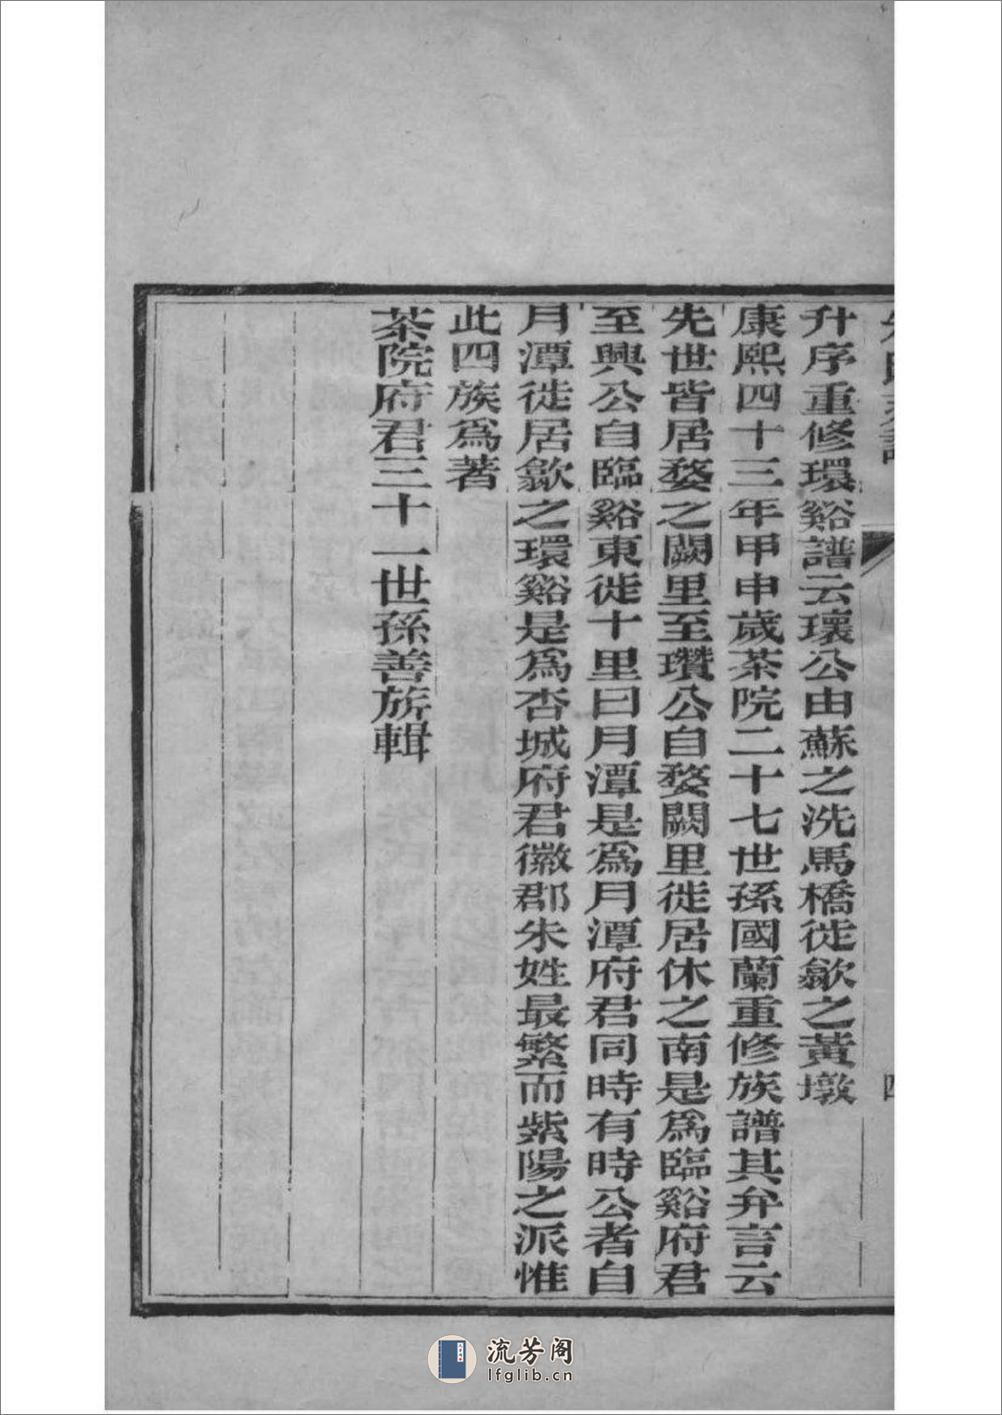 升序重修環谿譜云瓌公由蘇之洗馬橋徙歙之黃墩
康熙四十三年甲申歲茶院二十七世孫國蘭重修族譜其弁言云
先世皆居婺之闕里至瓚公自婺闕里徙居休之南是爲臨谿府君
至興公自臨谿東徙十里曰月潭是爲月潭府君同時有時公者自
月潭徙居歙之環谿是爲杏城府君徽郡朱姓最繁而紫陽之派惟
此四族爲著
茶院府君三十一世孫善旂輯
流芳阁
lfglib.cn